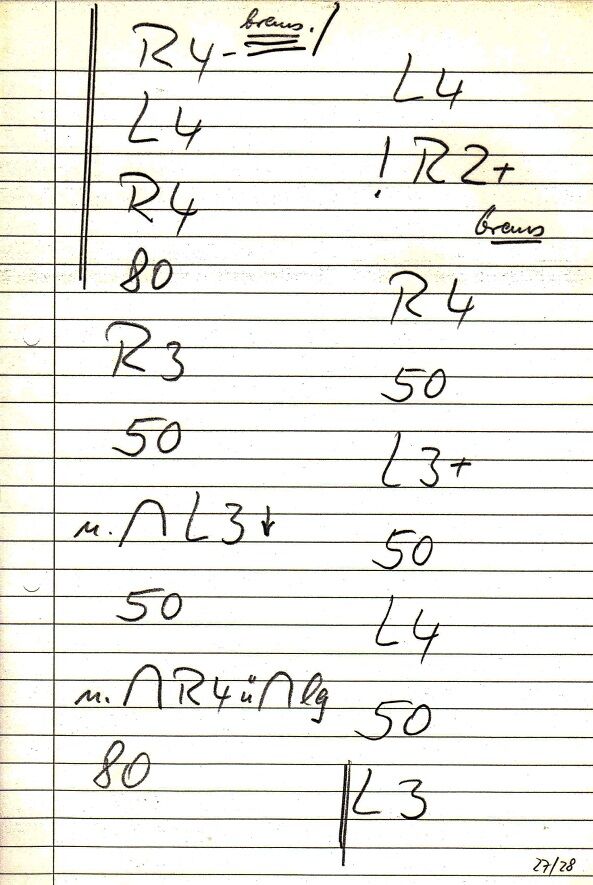 R4- brems. /
L4
R4
80
R3
50
n. ∩ L3 ↓
50
n. ∩ R4 ü ∩ lg
80
L4
! R2+
brems
R4
50
L3+
50
L4
50
L3
27/28